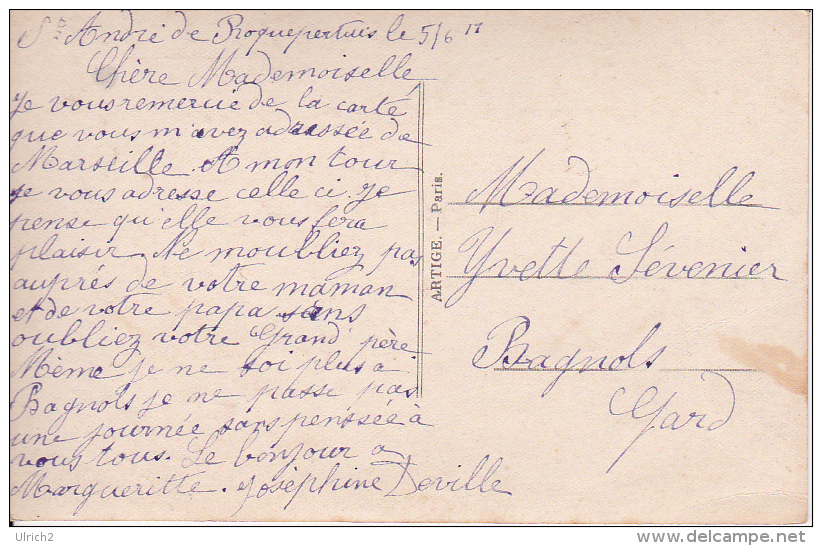 St André de Roquepertuis le 5/6 17
Chère Mademoiselle
Je vous remercie de la carte
que vous m'avez adressée de
Marseille. A mon tour
je vous adresse celle ci je
pense qu'elle vous fera
plaisir. Ne moubliez pas
auprés de votre maman
et de votre papa sans
oubliez votre Grand père
Mème je ne soi plus à
Bagnols je ne passe pas
une journée sans pensée à
vous tous. Le bonjour a
Margueritte. Joséphine Deville
ARTIGE. — Paris.
Mademoiselle
Yvette Sévenier
Bagnols
Gard
Ulrich2
delcampe.net